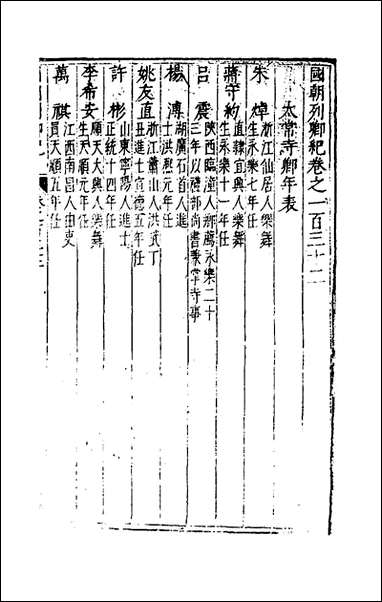 國朝列卿紀卷之一百三十二
太常寺卿年表
朱焯 浙江仙居人樂舞
生永樂七年任
蔣守約 直隸宜興人樂舞
生永樂十年任
呂震 陝西臨潼人鄉薦永樂二十
三年以禮部尚書兼掌寺事
楊溥 湖廣石首人進
士洪熙元年任
姚友直 浙江蕭山人洪武丁
丑進士宣德五年任
許彬 山東寧陽人進士
正統十四年任
李希安 順天大興人樂舞
生天順元年任
萬祺 江西南昌人由吏
員天順五年任